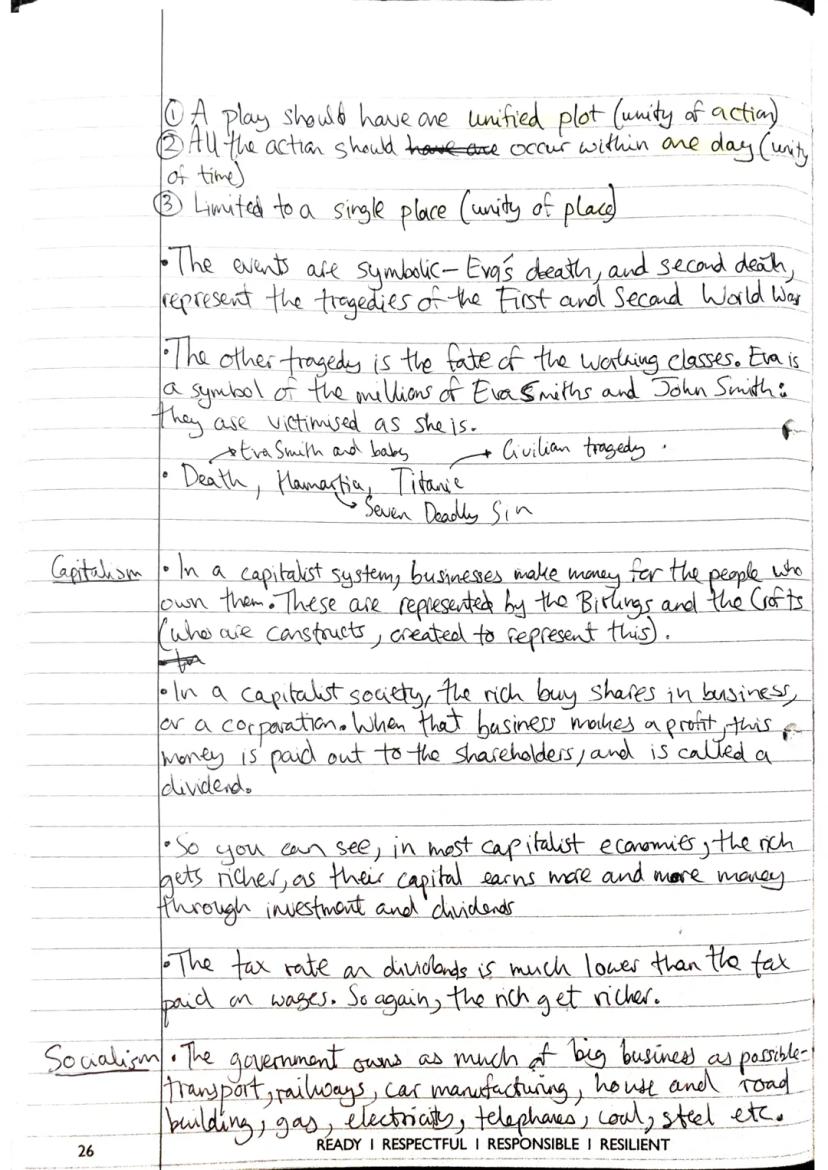 ① A play should have one unified plot (unity of action)
② All the action should have are occur within one day (unity
of time)
③ Limited to a single place (unity of place)
• The events are symbolic – Eva's death, and second death,
represent the tragedies of the First and Second World War
• The other tragedy is the fate of the working classes. Eva is
a symbol of the millions of Eva Smiths and John Smith:
they are victimised as she is.
→ Eva Smith and baby → Civilian tragedy .
• Death, Hamartia, Titanic
→ Seven Deadly Sin
Capitalism • In a capitalist system, businesses make money for the people who
own them. These are represented by the Birlings and the Crofts
(who are constructs, created to represent this).
• In a capitalist society, the rich buy shares in business,
or a corporation. When that business makes a profit, this
money is paid out to the shareholders, and is called a
dividend.
• So you can see, in most capitalist economies, the rich
gets richer, as their capital earns more and more money
through investment and dividends
• The tax rate on dividends is much lower than the tax
paid on wages. So again, the rich get richer.
Socialism • The government owns as much of big business as possible-
transport, railways, car manufacturing, house and road
building, gas, electricity, telephones, coal, steel etc.
26 READY I RESPECTFUL I RESPONSIBLE I RESILIENT